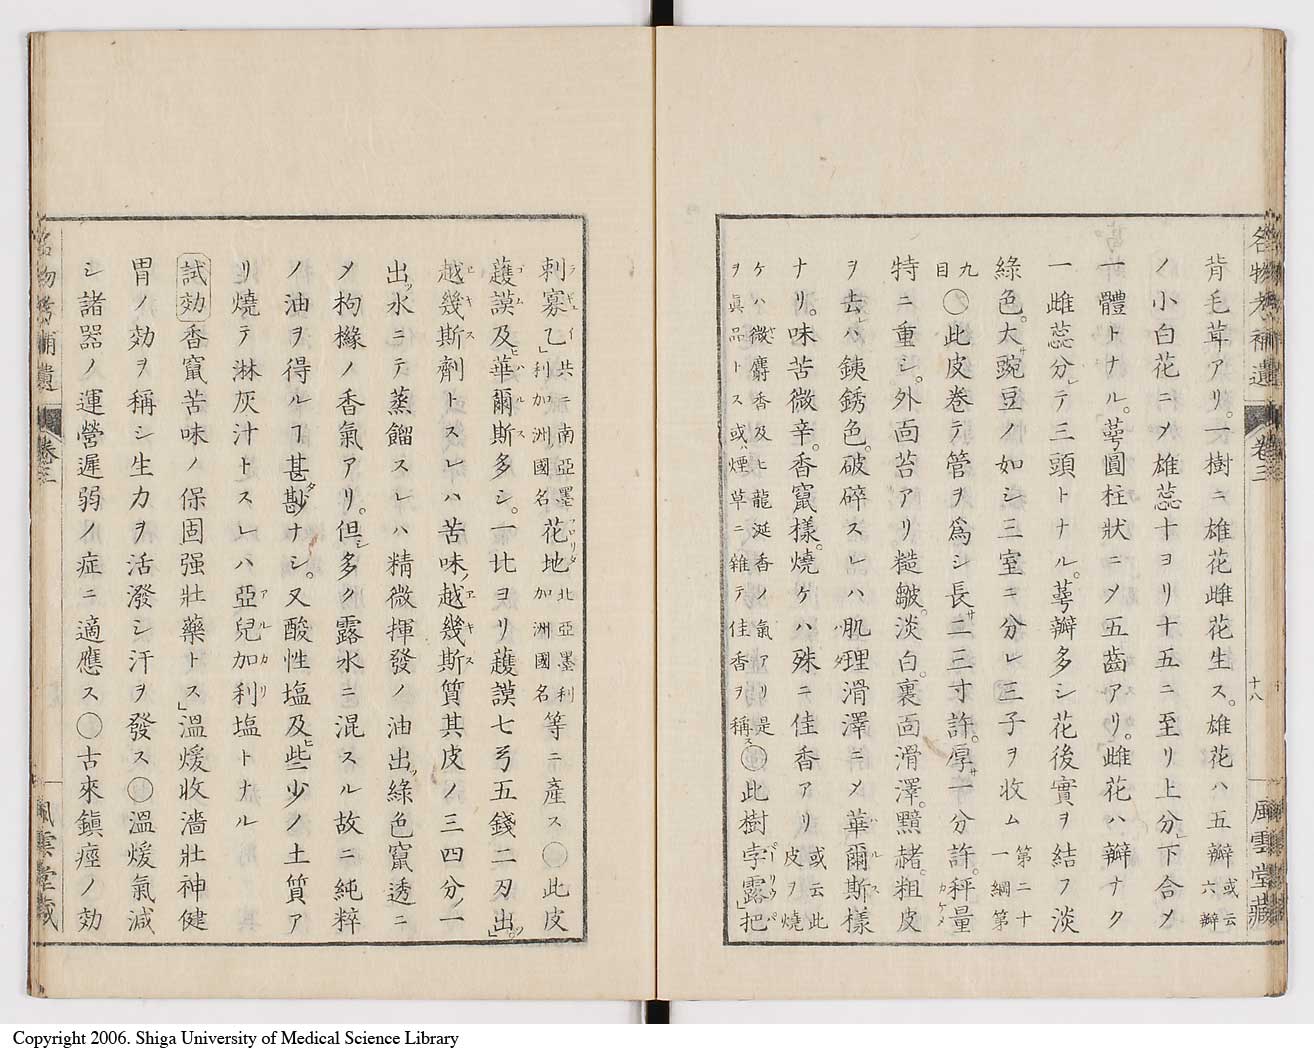 名物考補遺 卷三 十八 風雲堂藏
背毛茸アリ。一樹ニ雄花雌花生ス。雄花ハ五瓣或云六瓣
ノ小白花ニメ雄蕊十ヨリ十五ニ至リ上分レ下合メ
一體トナル。萼圓柱狀ニメ五齒アリ。雌花ハ瓣ナク
一雌蕊分レテ三頭トナル。萼瓣多シ花後實ヲ結フ淡
綠色。大サ豌豆ノ如シ三室ニ分レ三子ヲ收ム第二十一綱第
九目○此皮卷テ管ヲ爲シ長サ二三寸許。厚サ一分許。秤量カケメ
特ニ重シ。外面苔アリ糙皺。淡白。裏面滑澤。黯赭。粗皮
ヲ去レハ銕銹色。破碎スレハ肌理滑澤ニメ華爾斯ハルス樣
ナリ。味苦微辛。香竄樣。燒ケハ殊ニ佳香アリ或云此皮ヲ燒
ケハ微麝香及ヒ龍涎香ノ氣アリ是ヲ眞品トス或煙草ニ雜テ佳香ヲ稱ス○此樹孛露把
刺寡乙共ニ南亞墨利加洲ノ國名花地北亞墨利加洲國名等ニ產ス○此皮
護謨ゴム及ヒ華爾斯ハルス多シ。一比ヲヨリ護謨七弓五錢二刃出ツ。
越幾斯エキス劑トスレハ苦味ノ越幾斯エキス質其皮ノ三四分ノ一
出ツ水ニテ蒸餾スレハ精微揮發ノ油出ツ綠色竄透ニ
メ枸櫞ノ香氣アリ。但シ多ク露水ニ混スル故ニ純粹
ノ油ヲ得ルヿ甚尠ナシ。又酸性塩及ヒ些少ノ土質ア
リ燒テ淋灰汁トスレハ亞兒加利アルカリ塩トナル
試効 香竄苦味ノ保固强壯藥トス」溫煖收濇壯神健
胃ノ効ヲ稱シ生力ヲ活潑シ汗ヲ發ス○溫煖氣減
シ諸器ノ運營遲弱ノ症ニ適應ス○古來鎭痙ノ効
名物考補遺 卷三 風雲堂藏
Copyright 2006. Shiga University of Medical Science Library